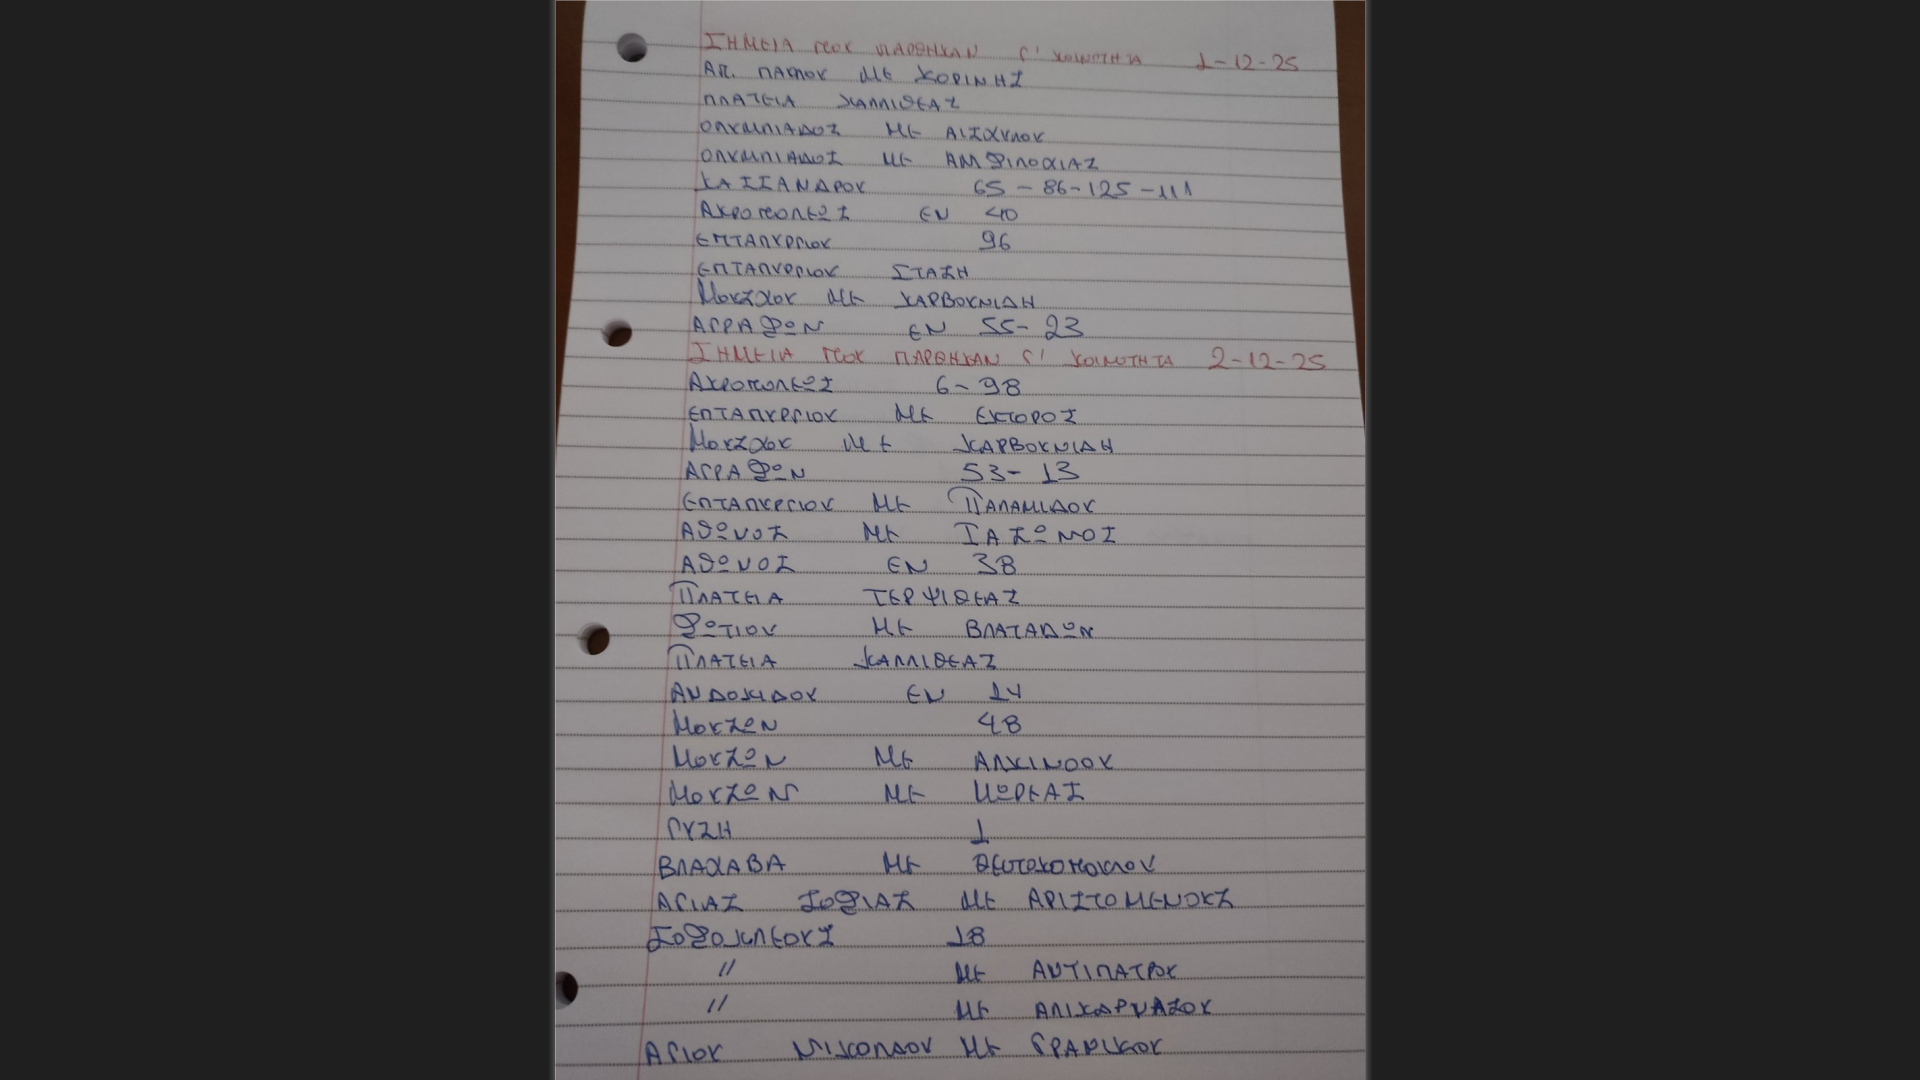 ΣΗΜΕΙΑ ΠΟΥ ΠΑΡΘΗΚΑΝ Γ' ΚΟΙΝΟΤΗΤΑ 1-12-25
ΑΠ. ΠΑΥΛΟΥ ΜΕ ΚΟΡΙΝΗΣ
ΠΛΑΤΕΙΑ ΚΑΛΛΙΘΕΑΣ
ΟΛΥΜΠΙΑΔΟΣ ΜΕ ΑΙΣΧΥΛΟΥ
ΟΛΥΜΠΙΑΔΟΣ ΜΕ ΑΜΦΙΛΟΧΙΑΣ
ΚΑΣΣΑΝΔΡΟΥ 65-86-125-111
ΑΚΡΟΠΟΛΕΩΣ ΕΝ 40
ΕΠΤΑΠΥΡΓΙΟΥ 96
ΕΠΤΑΠΥΡΓΙΟΥ ΣΤΑΣΗ
ΜΟΥΣΧΟΥ ΜΕ ΚΑΡΒΟΥΝΙΔΗ
ΑΓΡΑΦΩΝ ΕΝ 55-23
ΣΗΜΕΙΑ ΠΟΥ ΠΑΡΘΗΚΑΝ Γ' ΚΟΙΝΟΤΗΤΑ 2-12-25
ΑΚΡΟΠΟΛΕΩΣ 6-98
ΕΠΤΑΠΥΡΓΙΟΥ ΜΕ ΕΚΤΟΡΟΣ
ΜΟΥΣΧΟΥ ΜΕ ΚΑΡΒΟΥΝΙΔΗ
ΑΓΡΑΦΩΝ 53-13
ΕΠΤΑΠΥΡΓΙΟΥ ΜΕ ΠΑΛΑΜΙΔΟΥ
ΑΘΩΝΟΣ ΜΕ ΙΑΣΩΝΟΣ
ΑΘΩΝΟΣ ΕΝ 38
ΠΛΑΤΕΙΑ ΤΕΡΨΙΘΕΑΣ
ΦΩΤΙΟΥ ΜΕ ΒΛΑΤΑΔΩΝ
ΠΛΑΤΕΙΑ ΚΑΛΛΙΘΕΑΣ
ΑΝΔΟΚΙΔΟΥ ΕΝ 14
ΜΟΥΣΩΝ 48
ΜΟΥΣΩΝ ΜΕ ΑΛΚΙΝΟΟΥ
ΜΟΥΣΩΝ ΜΕ ΜΩΡΕΑΣ
ΓΥΖΗ 1
ΒΛΑΧΑΒΑ ΜΕ ΘΕΟΤΟΚΟΠΟΥΛΟΥ
ΑΓΙΑΣ ΣΟΦΙΑΣ ΜΕ ΑΡΙΣΤΟΜΕΝΟΥΣ
ΣΟΦΟΚΛΕΟΥΣ 18
// ΜΕ ΑΝΤΙΠΑΤΡΟΥ
// ΜΕ ΑΛΙΚΑΡΝΑΣΟΥ
ΑΓΙΟΥ ΝΙΚΟΛΑΟΥ ΜΕ ΓΡΑΝΙΚΟΥ